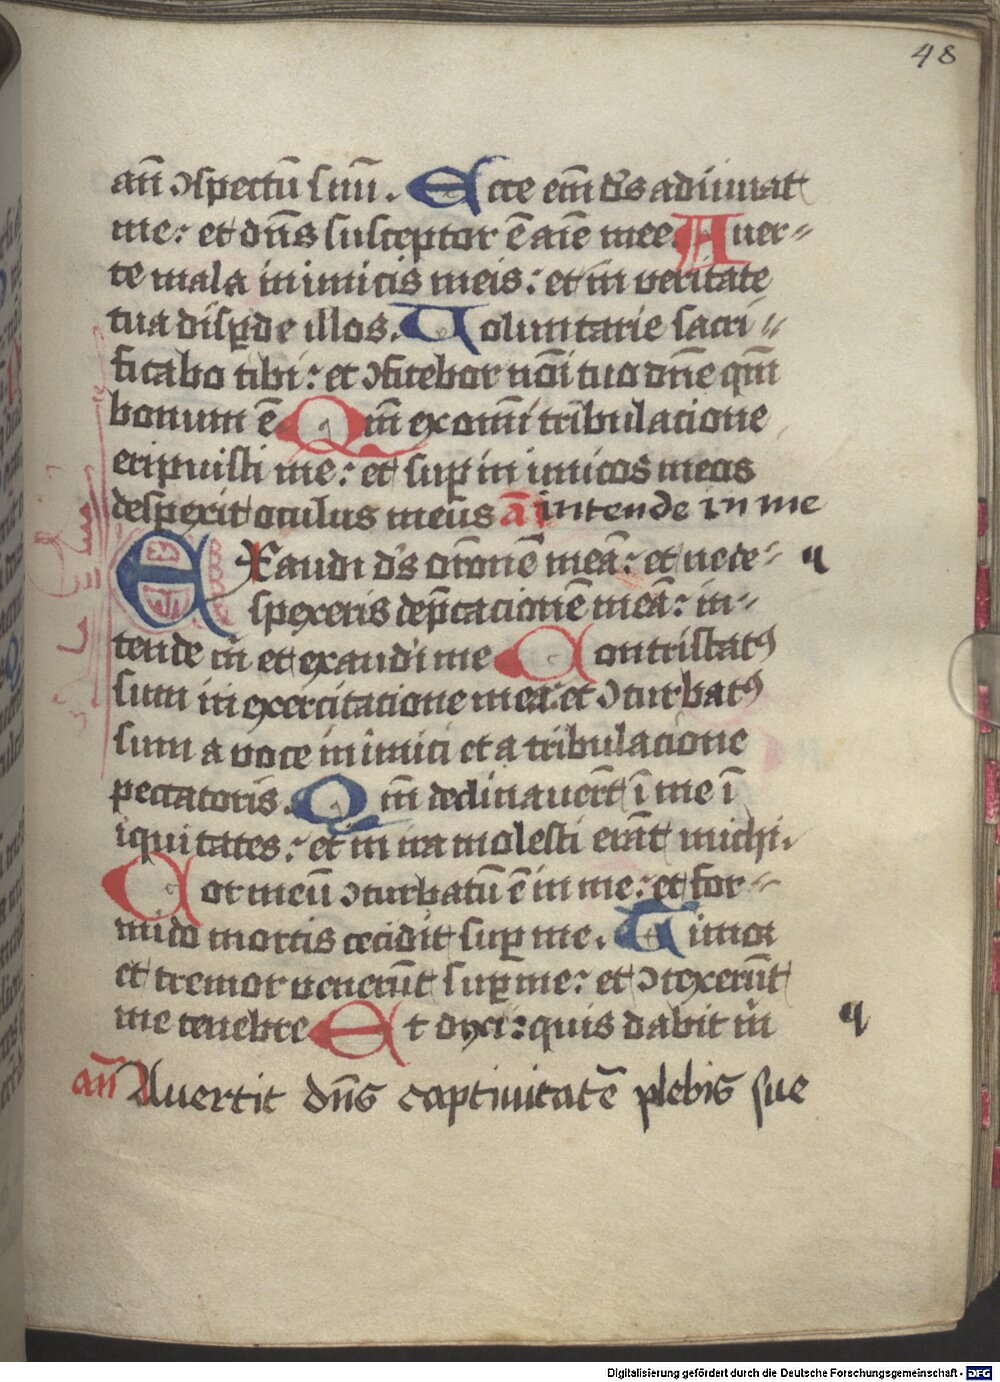 48
an̄ ↄspectū suū. Ecce em̄ ds̄ adiuuat
me: et dn̄s susceptor ē aīe mee. Auer=
te mala inimicis meis: et in veritate
tua disꝑde illos. Uoluntarie sacri=
ficabo tibi: et ↄfitebor nōi tuo dn̄e qm̄
bonum ē Qm̄ ex omī tribulacione
eripuisti me: et suꝑ inimicos meos
despexit oculus meus an̄ intende in me
Exaudi ds̄ oronē meā: et ne de=
spexeris dep̄cacionē meā: in=
tende m̄ et exaudi me Contristatꝰ
sum in exercitacione mea: et ↄturbatꝰ
sum a uoce inimici et a tribulacione
peccatoris. Qm̄ declinauer̄t ī me ī
iquitates: et in ira molesti erāt michi.
Cor meū ↄturbatū ē in me: et for=
mido mortis cecidit suꝑ me. Timor
et tremor venerūt suꝑ me: et ↄtexerūt
me tenebre Et dixi: quis dabit m̄
an̄ Auertit dn̄s captiuitatē plebis sue
Digitalisierung gefördert durch die Deutsche Forschungsgemeinschaft - DFG